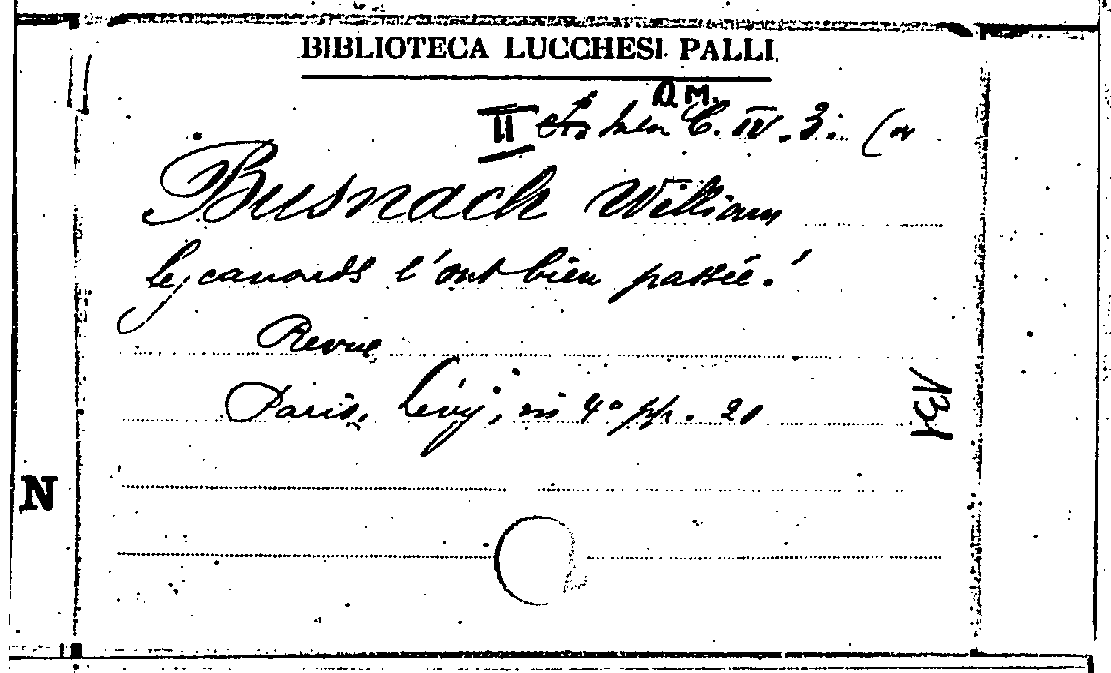 BIBLIOTECA LUCCHESI PALLI
D.M.
II C. IV. 3.
Busnach William
Les canards l'ont bien passée!
Revue
Paris, Lévy, in 4° pp. 20
N